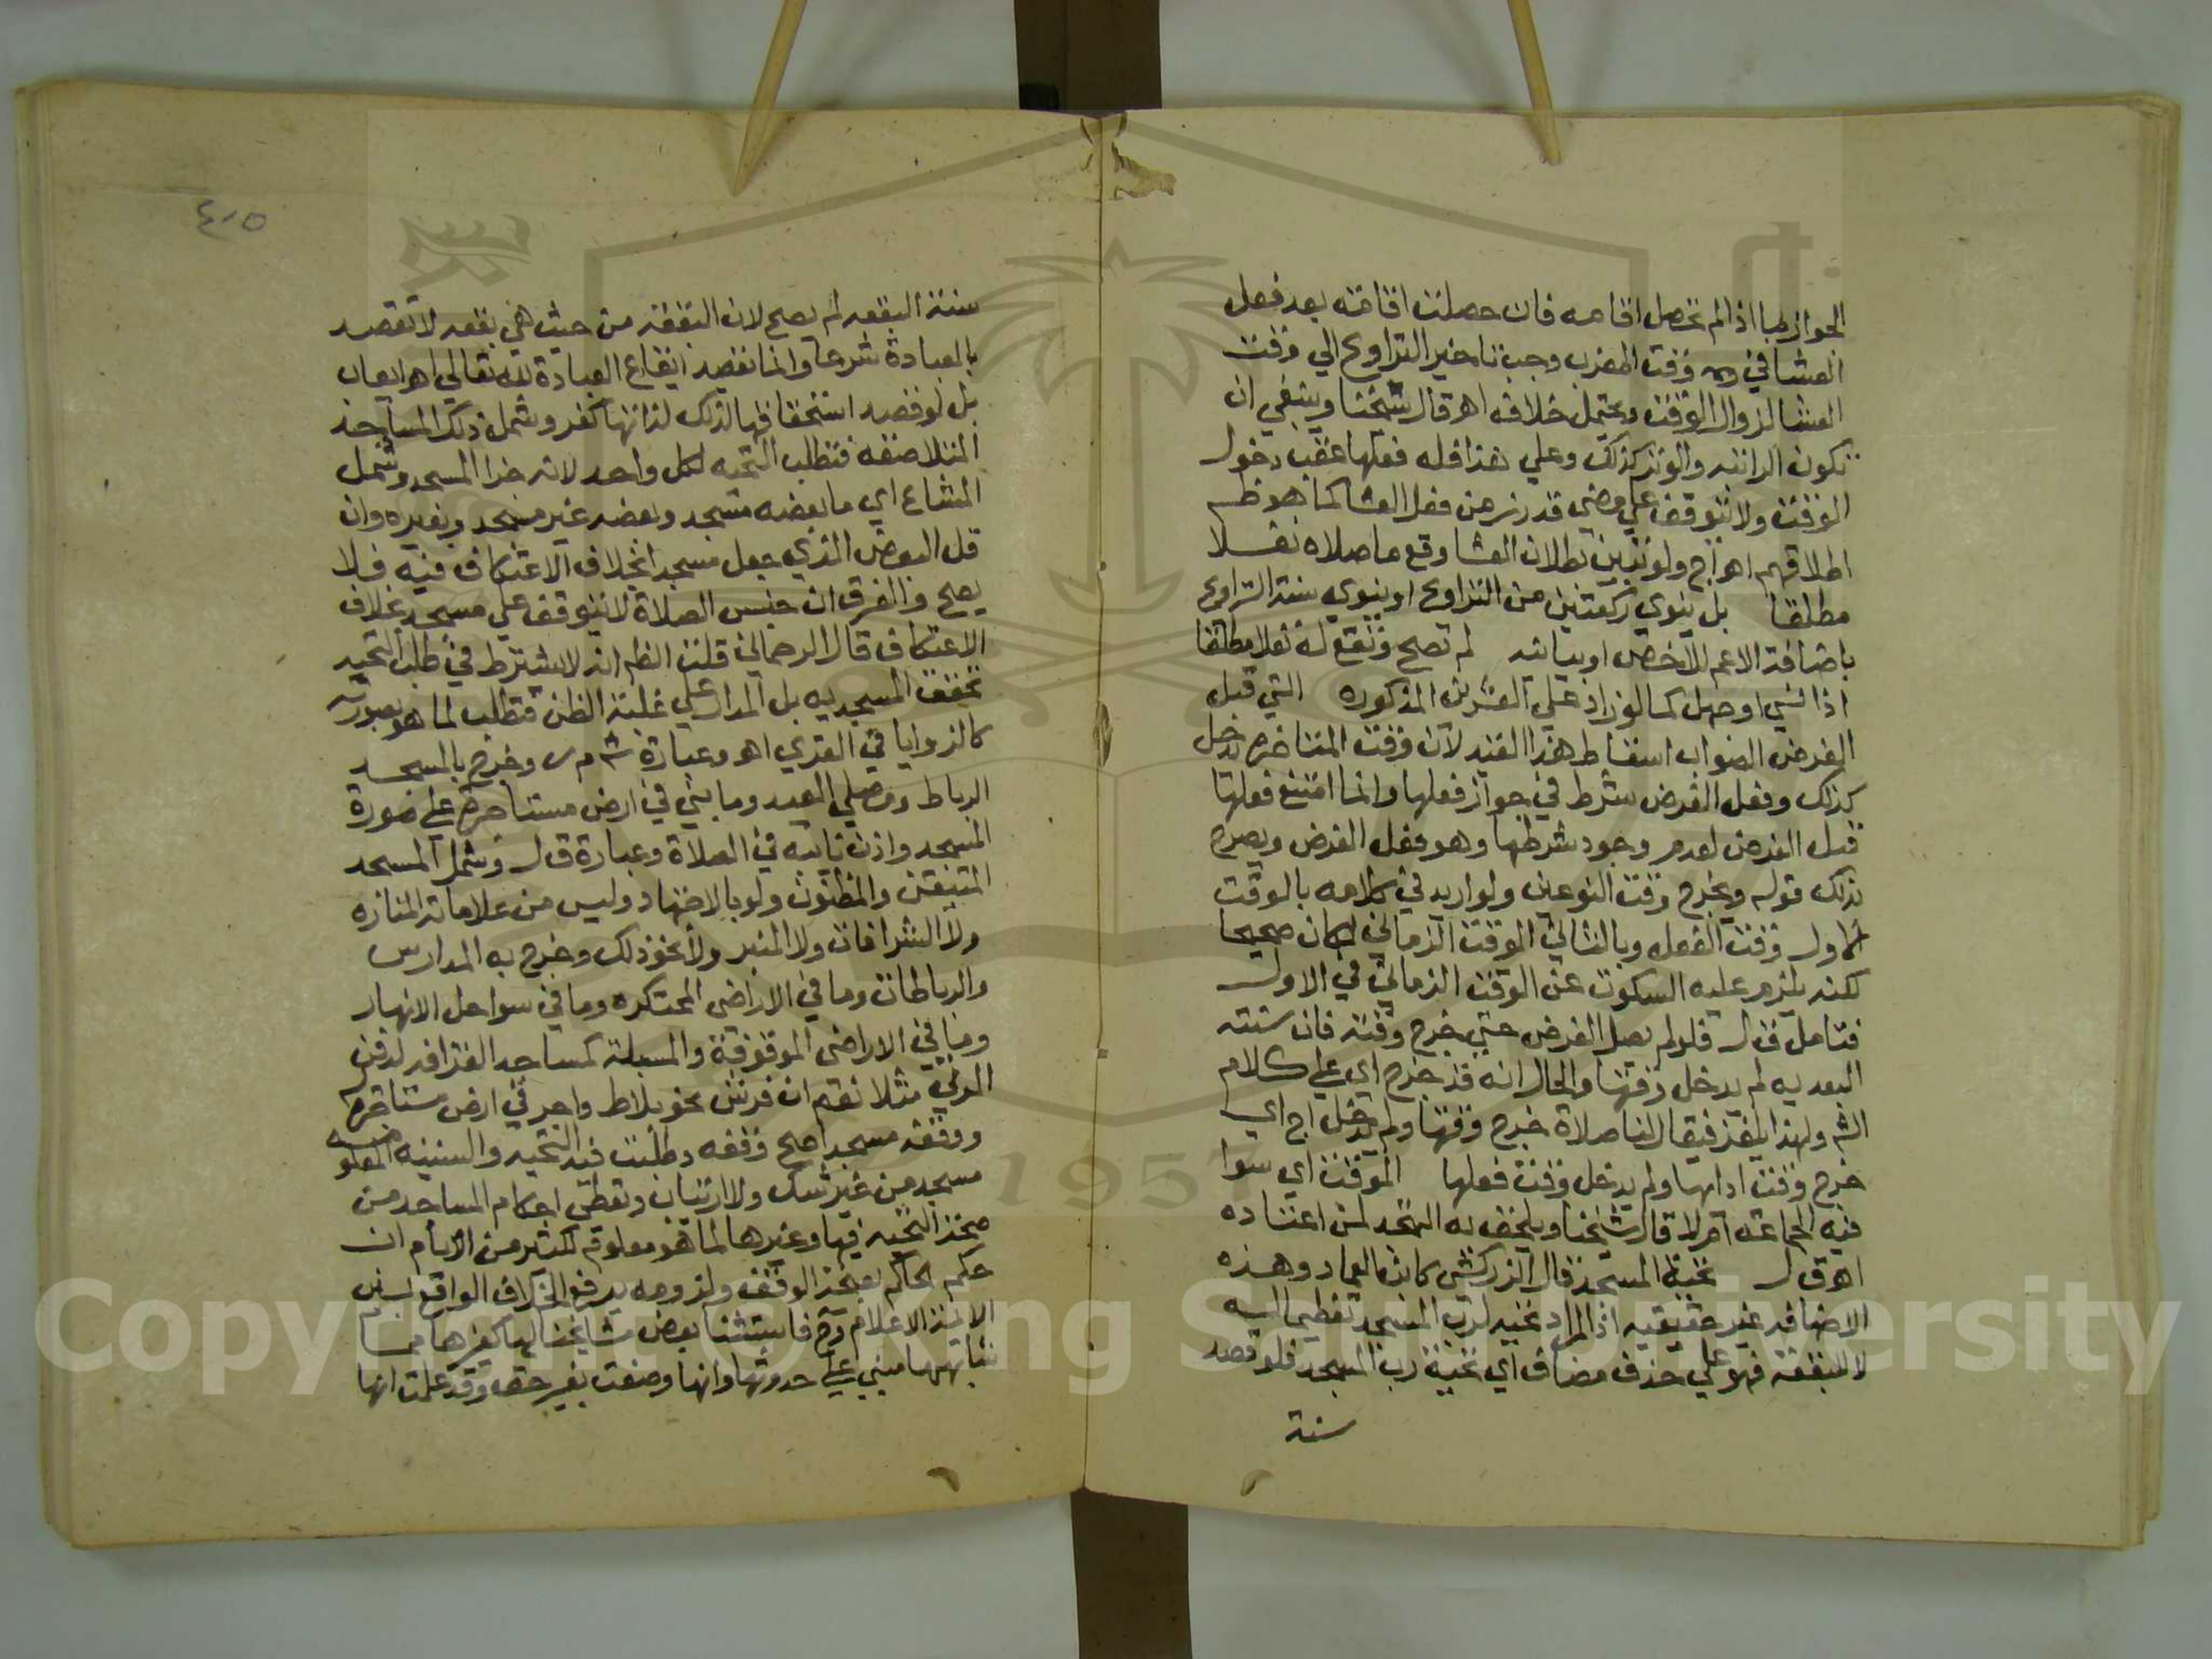 الجواز لها اذا لم تحصل اقامه فان حصلت اقامته بعد فعل
العشا في وقت المغرب وجب تاخير التراويح الي وقت
العشا لزوال الوقت ويحتمل خلافه اه قال شيخنا وينبغي ان
تكون الراتبه والوتر كذلك وعلي هذا فله فعلها عقب دخول
الوقت ولا تتوقف علي مضي قدر زمن فعل العشا كما هو ظ
اطلاقهم اه اج ولو تبين بطلان العشا وقع ما صلاه نفلا
مطلقا بل ينوي ركعتين من التراويح او ينوي سنة التراويح
باضافة الاعم للاخص او بيانيه لم تصح وتقع له نفلا مطلقا
اذا نسي او جهل كما لو زاد علي العشرين المذكوره التي قبل
الفرض الصواب اسقاط هذا القيد لان وقت المتاخره يدخل
كذلك وفعل الفرض شرط في جواز فعلها وانما امتنع فعلها
قبل الفرض لعدم وجود شرطها وهو فعل الفرض ويصرح
بذلك قوله ويخرج وقت النوعين ولو اريد في كلامه بالوقت
الاول وقت الفعل وبالثاني الوقت الزماني لكان صحيحا
لكنه يلزم عليه السكوت عن الوقت الزماني في الاول
فتامل ق ل فلو لم يصل الفرض حتي خرج وقته فان سنته
البعديه لم يدخل وقتها والحال انه قد خرج اي علي كلام
الش ولهذا يلغز فيقال لنا صلاة خرج وقتها ولم يدخل اج اي
خرج وقت ادائها ولم يدخل وقت فعلها الموقت اي سوا
فيه الجماعة ام لا قال شيخنا ويلحق به التهجد لمن اعتاده
اه ق ل تحية المسجد قال الزركشي كابن العماد وهذه
الاضافه غير حقيقيه اذ المراد تحيه لرب المسجد تعظيما له
لا للبقعه فهو علي حذف مضاف اي تحية رب المسجد فلو قصد
سنة
٤٠٥
سنة البقعه لم يصح لان البقعه من حيث هي بقعه لا تقصد
بالعبادة شرعا وانما نقصد ايقاع العبادة لله تعالي اه ايعاب
بل لو قصد استحقاقها لذلك لذاتها كفر وشمل ذلك المساجد
المتلاصقه فتطلب التحيه لكل واحد لانه جزا المسجد وشمل
المشاع اي ما بعضه مسجد وبعضه غير مسجد وبغيره وان
قل البعض الذي جعل مسجدا بخلاف الاعتكاف فيه فلا
يصح والفرق ان جنس الصلاة لا يتوقف علي مسجد بخلاف
الاعتكاف قال الرحماني قلت الظ انه لا يشترط في طلب التحيه
تحقق المسجديه بل المدار علي غلبة الظن فتطلب لما هو بصورته
كالزوايا في القري اه وعبارة ش م ر وخرج بالمسجد
الرباط ومصلي العيد وما بني في ارض مستاجره علي صورة
المسجد واذن بانيه في الصلاة وعبارة ق ل وشمل المسجد
المتيقن والمظنون ولو بالاجتهاد وليس من علاماته المناره
ولا الشرافات ولا المنبر ولا نحو ذلك وخرج به المدارس
والرباطات وما في الاراضي المحتكره وما في سواحل الانهار
وما في الاراضي الموقوفة والمسبلة كمساجد القرافه لدفن
الموتي مثلا نعم ان فرش نحو بلاط واجر في ارض مستاجره
ووقفه مسجدا صح وقفه وطلبت فيه التحيه والسنيه
مسجد من غير شك ولا ارتياب وتعطي احكام المساجد من
صحة التحيه فيها وغيرها لما هو معلوم لكثير من الانام ان
حكم الحاكم بصحة الوقف ولزومه يرفع الخلاف الواقع بين
الايمة الاعلام وح فاستثنا بعض مشايخنا لها كغيرها مما
شابهها مبني علي حدوثها وانها وضعت بغير حق وقد علمت انها